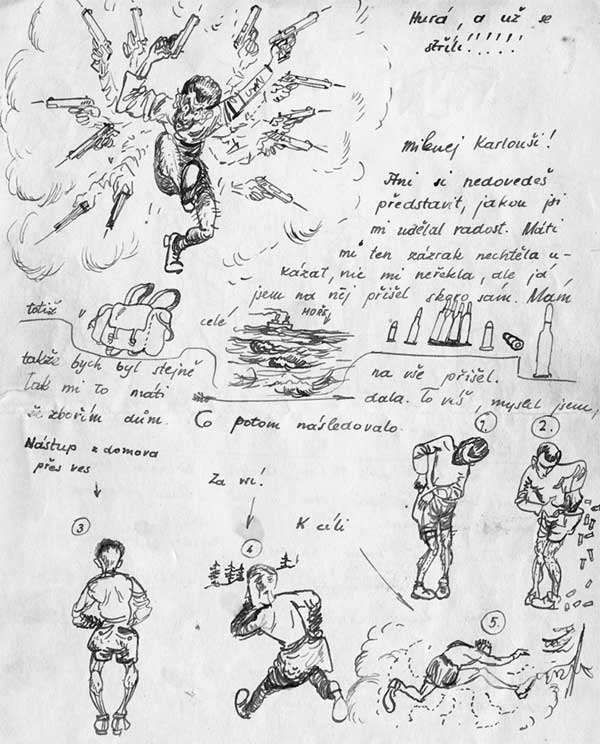 Hurá, a už se
střílí!!!!!
milunej Karlouši!
Ani si nedovedeš
představit, jakou jsi
mi udělal radost. Máti
mi ten zázrak nechtěla u-
kázat, nic mi neřekla, ale já
jsem na něj přišel skoro sám. Mám
totiž
celé
MOŘE
takže bych byl stejně
na vše přišel.
Tak mi to máti
dala. To víš, myslel jsem,
že zbořím dům. Co potom následovalo.
1.
2.
Nástup z domova
přes ves
Za vsí!
K cíli
3
4
5.